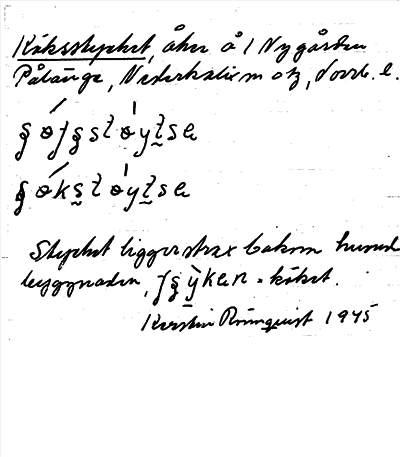 Köksstycket, åker å 1 Nygården
Pålänge, Nederkalix m otz, Norrb. l.
ʂøʃʂstøytse
ʂøkʂtøytse
Stycket ligger strax bakom huvud
byggnaden, ʃʂỳken = köket.
Kerstin Rönnquist 1945